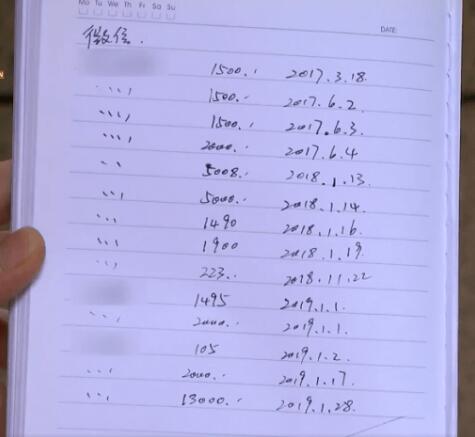 Mo Tu We Th Fr Sa Su
DATE:
微信.
1500.. 2017.3.18.
〃 1500.. 2017.6.2.
〃 1500.. 2017.6.3.
〃 2000.. 2017.6.4
〃 5008. 2018.1.13.
〃 5000.. 2018.1.14.
〃 1490 2018.1.16.
〃 1900 2018.1.19.
〃 223.. 2018.11.22
1495 2019.1.1.
〃 2000.. 2019.1.1.
105 2019.1.2.
〃 2000.. 2019.1.17.
〃 13000.. 2019.1.28.